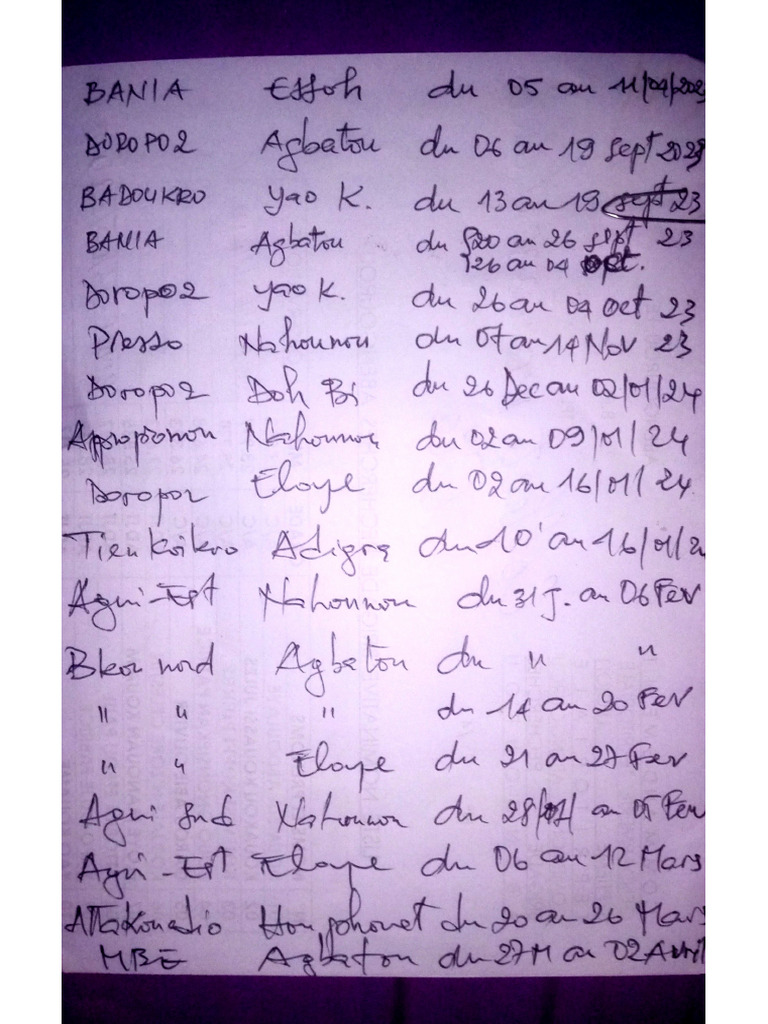 BANIA Essoh du 05 au 11/04/2023
DOROPO2 Agbatou du 06 au 19 sept 2023
BADOUKRO Yao K. du 13 au 19 sept 23
BANIA Agbatou du 20 au 26 sept 23
26 au 04 oct.
Doropo2 Yao K. du 26 au 04 Oct 23
Presso Nahounou du 07 au 14 Nov 23
Doropo2 Doh Bi du 26 Dec au 02/01/24
Appropronou Nahounou du 02 au 09/01/24
Doropo2 Eloye du 02 au 16/01/24
Tienkoikro Adigra du 10 au 16/01/2
Agni-Est Nahounou du 31 J. au 06 Fev
Bkou nord Agbatou du " "
" " " du 14 au 20 Fev
" " Eloye du 21 au 27 Fev
Agni Sud Nahounou du 28/ au 05 Fev
Agni-Est Eloye du 06 au 12 Mars
Attakouadio du 20 au 26 Mars
MBE Agbatou du 27 M au 02 Avril